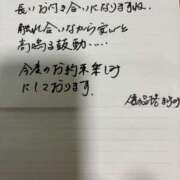 長いお付き合いになりますね。
触れ合いながら安心と
高鳴る鼓動・・・・
今度のお約束楽しみ
にしております。